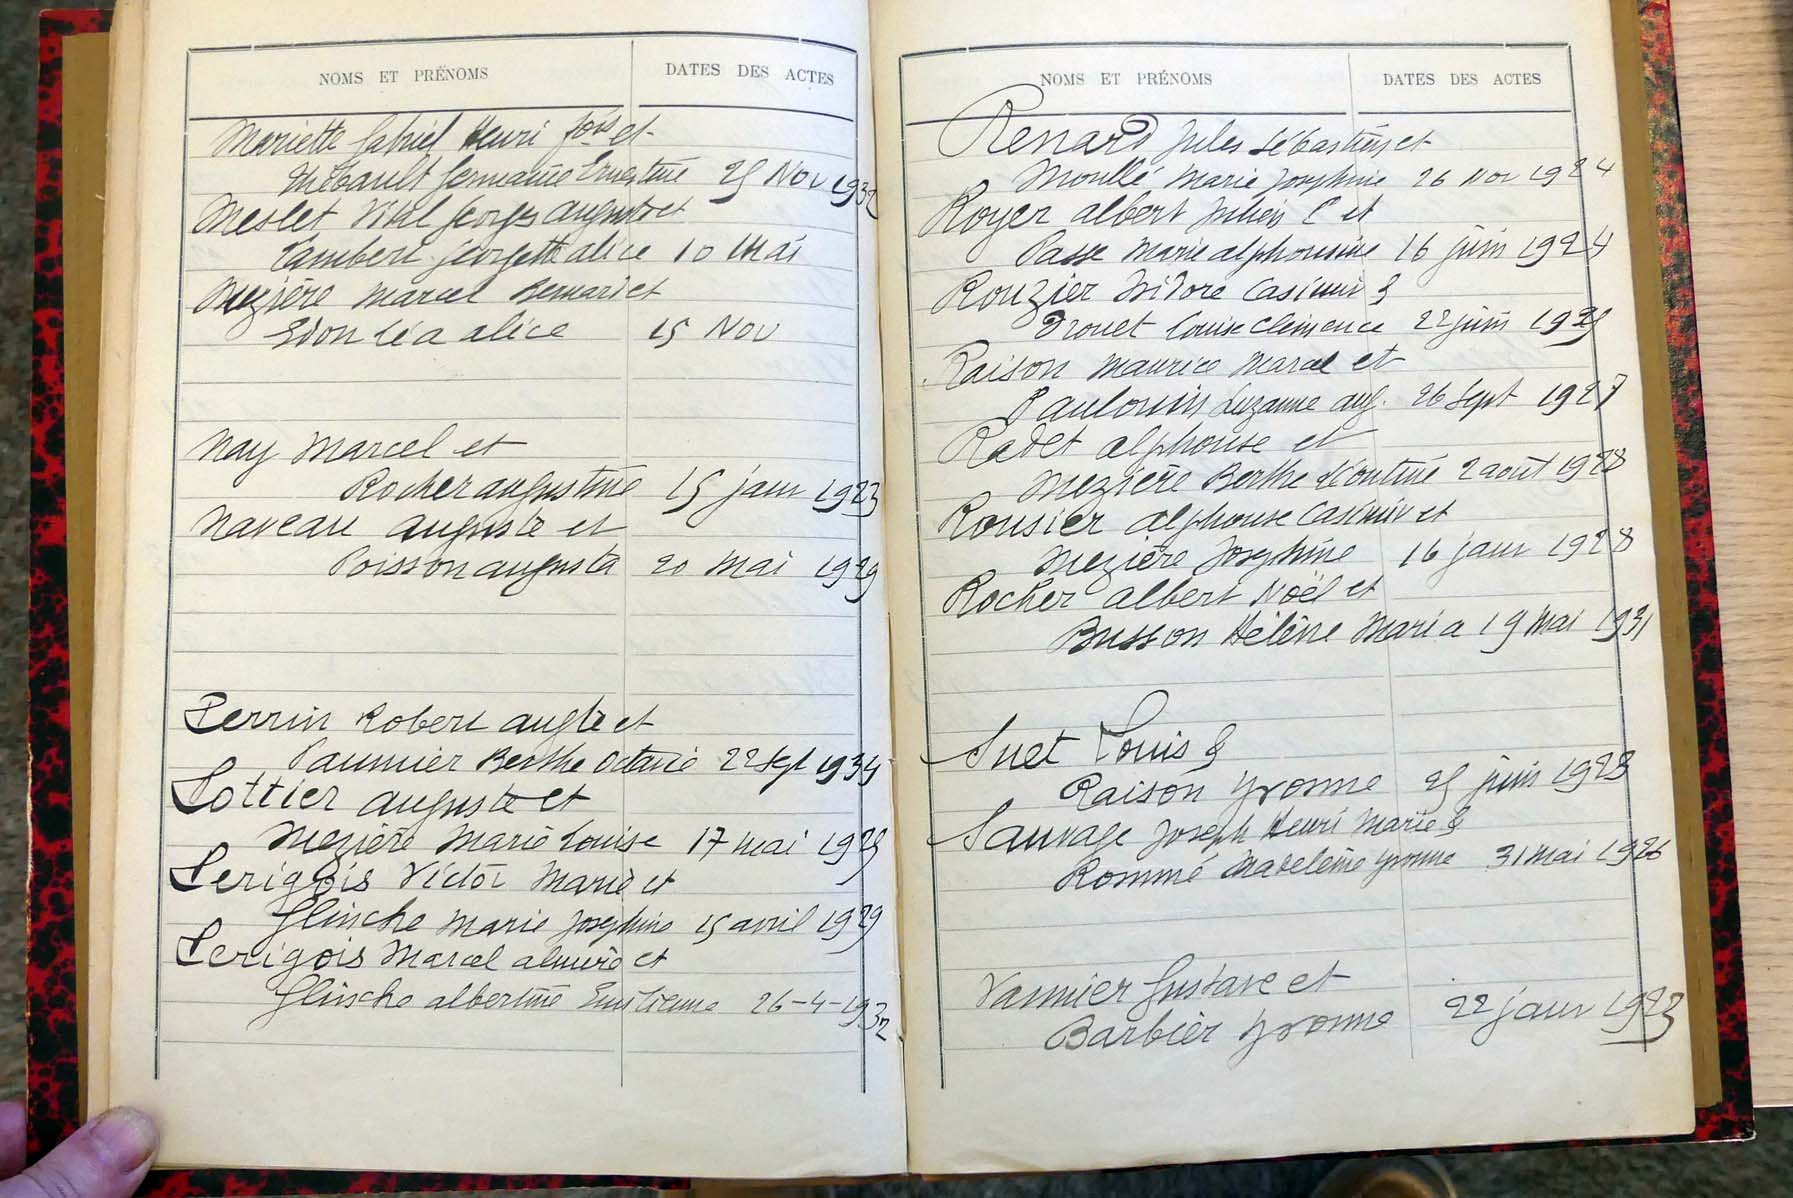 NOMS ET PRÉNOMS DATES DES ACTES
Mariette Gabriel Henri Fois et
Thébault Germaine Ernestine 25 Nov 1932
Meslet Vital Georges Auguste et
Lambert Georgette Alice 10 Mai
Mezière Marcel Bernard et
Edon Léa Alice 15 Nov
Nay Marcel et
Rocher Augustine 15 janv 1923
Naveau Auguste et
Poisson Augusta 20 Mai 1929
Perrin Robert et
Paumier Berthe Octavie 22 Sept 1934
Pottier Auguste et
Mezière Marie Louise 17 mai 1925
Perigois Victor Marie et
Glinche Marie Joséphine 15 avril 1929
Perigois Marcel et
Glinche Albertine Emilienne 26-4-1932
NOMS ET PRÉNOMS DATES DES ACTES
Renard Jules Sébastien et
Moullé Marie Joséphine 26 Nov 1924
Royer Albert Julien C et
Passe Marie Alphonsine 16 juin 1924
Rouzier Isidore Casimir &
Drouet Louise Clémence 22 juin 1925
Raison Maurice Marcel et
Paulouin Suzanne Aug. 26 Sept 1927
Radet Alphonse et
Mezière Berthe 2 août 1928
Rousier Alphonse Casimir et
Mezière Joséphine 16 janv 1928
Rocher Albert Noël et
Busson Hélène Maria 19 Mai 1931
Suet Louis &
Raison Yvonne 25 juin 1923
Sauvage Joseph Henri Marie &
Rommé Madeleine Yvonne 31 Mai 1926
Vannier Gustave et
Barbier Yvonne 22 janv 1923